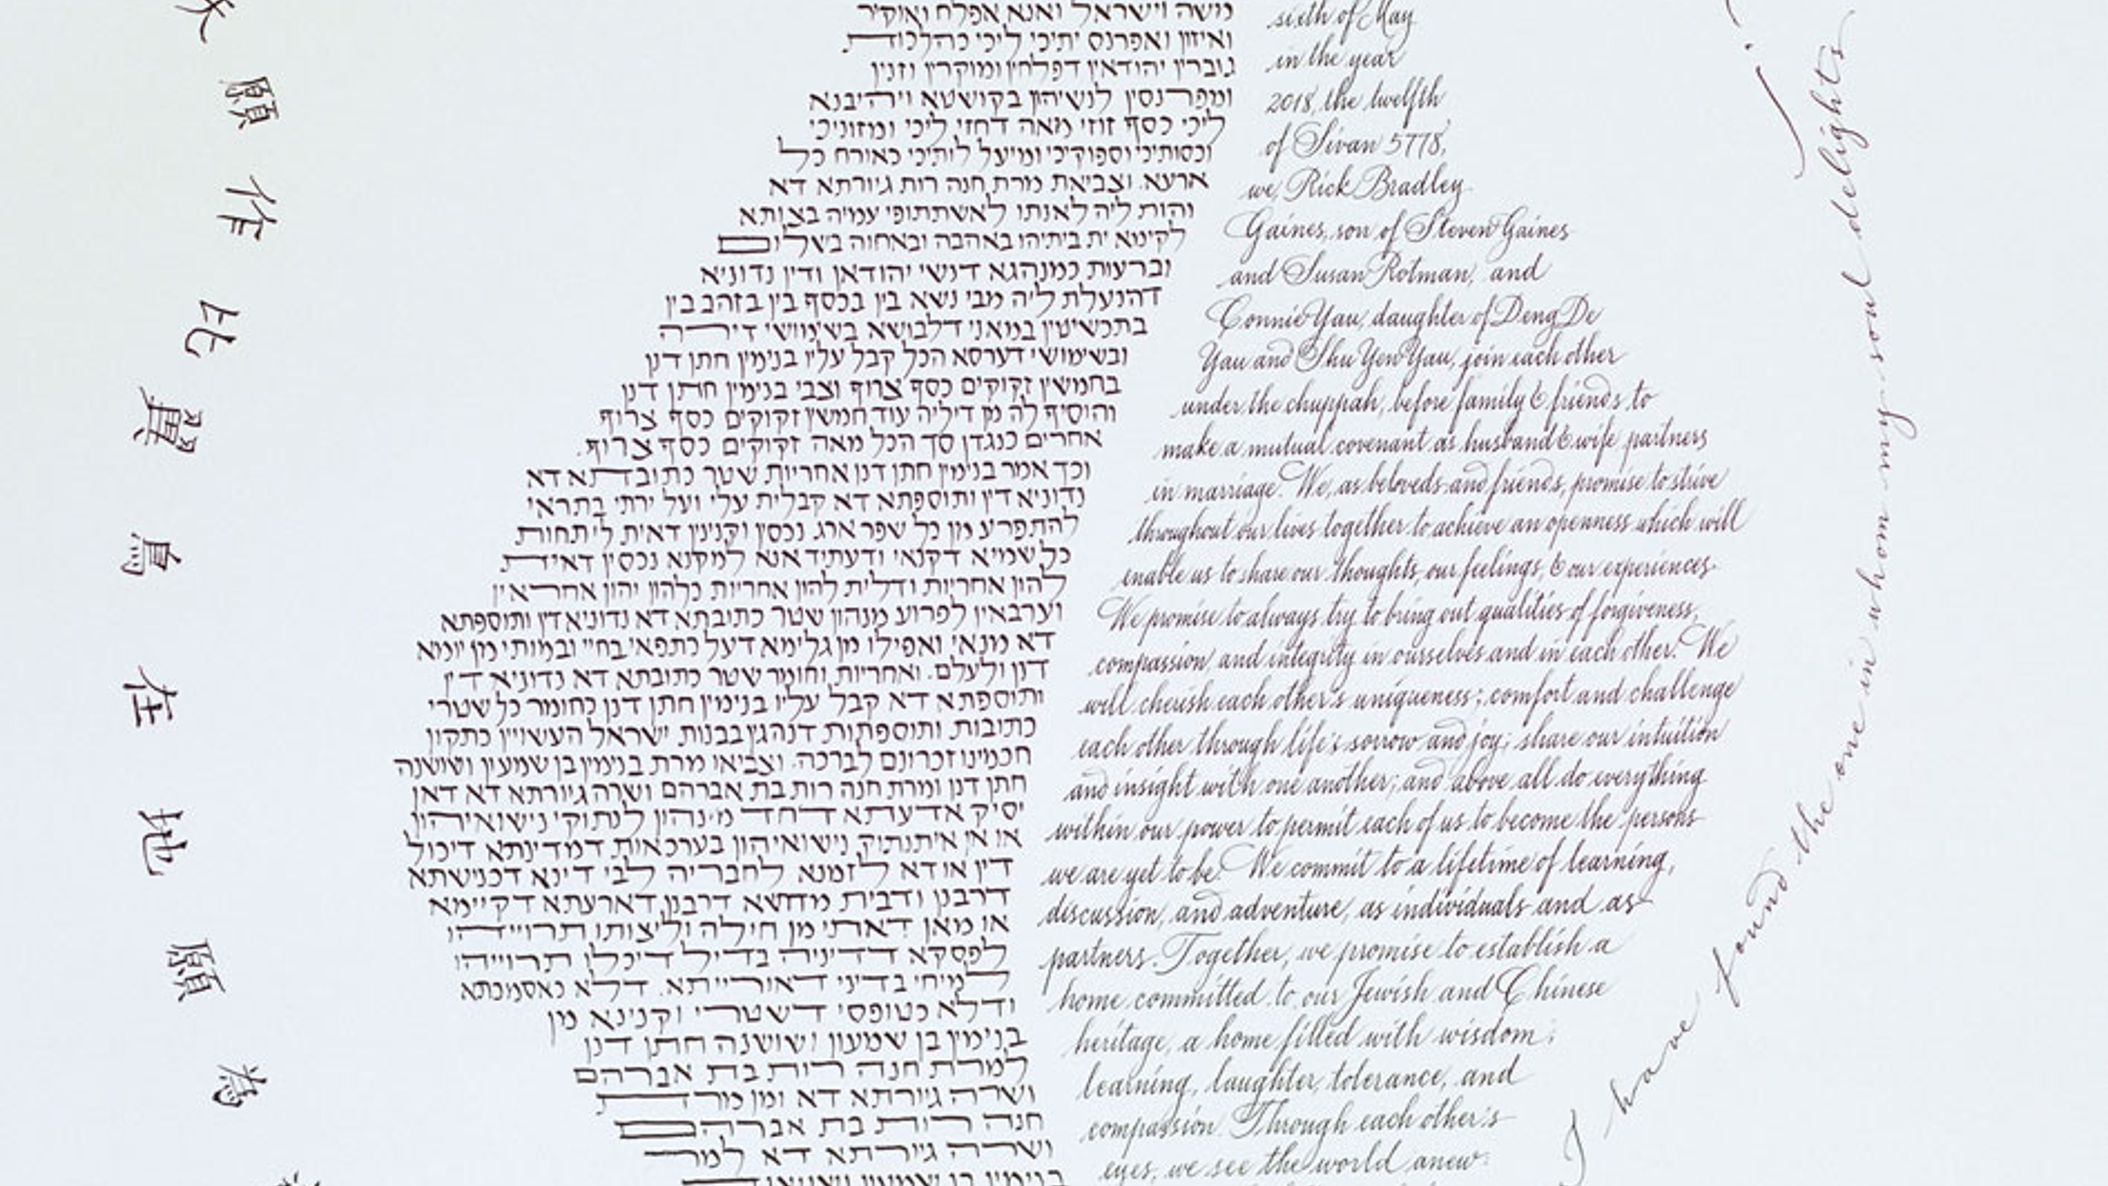 願
作
比
翼
鳥
在
地
願
為
משה וישראל ואנא אפלח ואוקיר
ואיזון ואפרנס יתיכי ליכי כהלכות
גוברין יהודאין דפלחין ומוקרין וזנין
ומפרנסין לנשיהון בקושטא ויהיבנא
ליכי כסף זוזי מאה דחזי ליכי ומזוניכי
וכסותיכי וסיפוקיכי ומיעל לותיכי כאורח כל
ארעא. וצביאת מרת חנה רות גיורתא דא
והות ליה לאנתו לאשתתופי עמיה בצותא
לקימא ית ביתיהו באהבה ובאחוה בשלום
וברעות כמנהגא דנשי יהודאן ודין נדוניא
דהנעלת ליה מבי נשא בין בכסף בין בזהב בין
בתכשיטין במאני דלבושא בשימושי דירה
ובשימושי דערסא הכל קבל עליו בנימין חתן דנן
בחמשין זקוקים כסף צרוף וצבי בנימין חתן דנן
והוסיף לה מן דיליה עוד חמשין זקוקים כסף צרוף
אחרים כנגדן סך הכל מאה זקוקים כסף צרוף.
וכך אמר בנימין חתן דנן אחריות שטר כתובתא דא
נדוניא דין ותוספתא דא קבלית עלי ועל ירתי בתראי
להתפרע מן כל שפר ארג נכסין וקנינין דאית לי תחות
כל שמיא דקנאי ודעתיד אנא למקנא נכסין דאית
להון אחריות ודלית להון אחריות כלהון יהון אחראין
וערבאין לפרוע מנהון שטר כתובתא דא נדוניא דין ותוספתא
דא מנאי ואפילו מן גלימא דעל כתפאי בחיי ובמותי מן יומא
דנן ולעלם. ואחריות וחומר שטר כתובתא דא נדוניא דין
ותוספתא דא קבל עליו בנימין חתן דנן כחומר כל שטרי
כתובות ותוספתות דנהגין בבנות ישראל העשויין כתקון
חכמינו זכרונם לברכה. וצביאו מרת בנימין בן שמעון ושושנה
חתן דנן ומרת חנה רות בת אברהם ושרה גיורתא דא דאן
יסיק אדעתא דחד מנהון לנתוקי נישואיהון
או אן איתנתוק נישואיהון בערכאות דמדינתא דיכול
דין או דא לזמנא לחבריה לבי דינא דכנישתא
דרבנן ודבית מדרשא דרבנן דארעתא דקיימא
או מאן דארתי מן חילה וליצותו תרוייהו
לפסקא דדיניה בדיל דיכלו תרוייהו
למיחי בדיני דאורייתא. דלא כאסמכתא
ודלא כטופסי דשטרי וקנינא מן
בנימין בן שמעון ושושנה חתן דנן
למרת חנה רות בת אברהם
ושרה גיורתא דא ומן מרת
חנה רות בת אברהם
ושרה גיורתא דא למר
sixth of May
in the year
2018, the twelfth
of Sivan 5778,
we, Rick Bradley
Gaines, son of Steven Gaines
and Susan Rotman, and
Connie Yau, daughter of Deng De
Yau and Shu Yen Yau, join each other
under the chuppah, before family & friends to
make a mutual covenant as husband & wife partners
in marriage. We, as beloveds and friends, promise to strive
throughout our lives together to achieve an openness which will
enable us to share our thoughts, our feelings, & our experiences.
We promise to always try to bring out qualities of forgiveness,
compassion, and integrity in ourselves and in each other. We
will cherish each other's uniqueness; comfort and challenge
each other through life's sorrow and joy; share our intuition
and insight with one another; and above all do everything
within our power to permit each of us to become the persons
we are yet to be. We commit to a lifetime of learning,
discussion, and adventure, as individuals and as
partners. Together, we promise to establish a
home committed to our Jewish and Chinese
heritage, a home filled with wisdom,
learning, laughter, tolerance, and
compassion. Through each other's
eyes, we see the world anew.
I have found the one in whom my soul delights